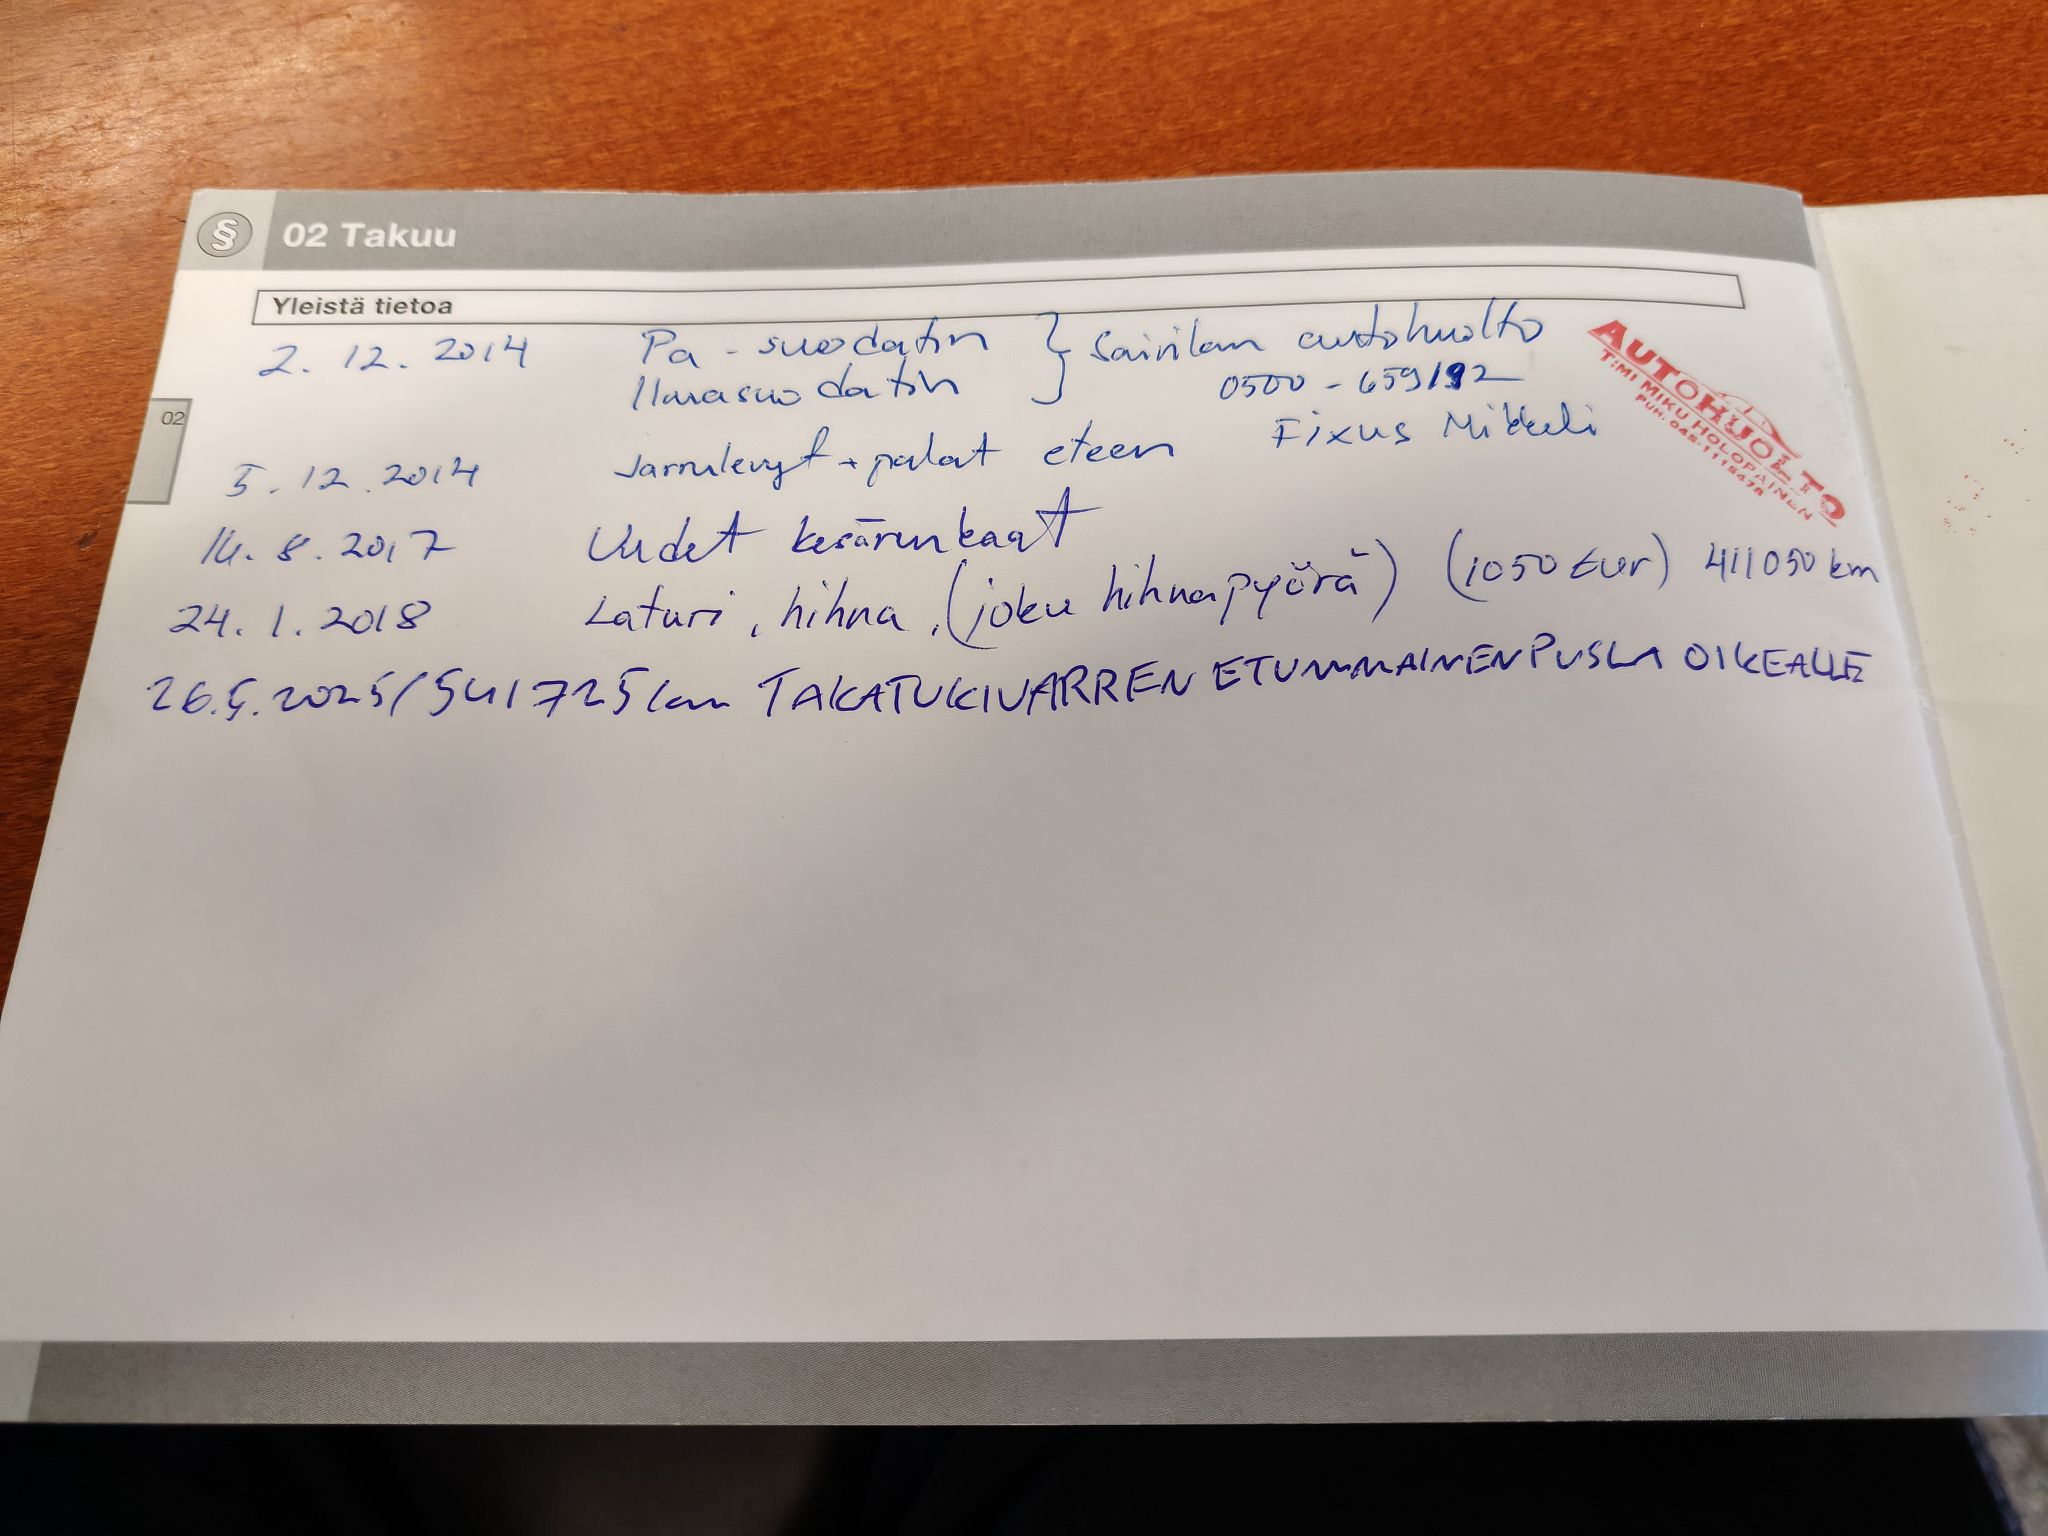 § 02 Takuu
Yleistä tietoa
2.12.2014 Pa-suodatin } Sairilan autohuolto
Ilmasuodatin 0500-659192
5.12.2014 Jarrulevyt + palat eteen Fixus Mikkeli
14.8.2017 Uudet kesärenkaat
24.1.2018 Laturi, hihna, (joku hihnapyörä) (1050 Eur) 411050 km
26.5.2025/541725km TAKATUKIVARREN ETUMMAINEN PUSLA OIKEALLE
AUTOHUOLTO
TIMI MIKU HOLOPAINEN
PUH. 045-1115478
02